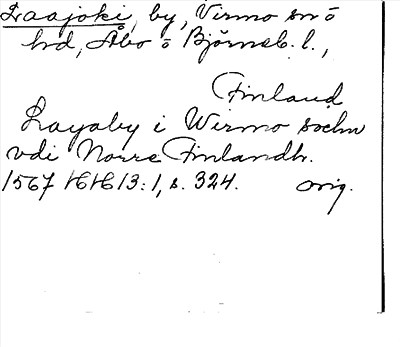 Laajoki, by, Virmo sn o
hd, Åbo o Björneb. l.,
Finland
Layaby i Wirmo sochn
vdi Norre Finlandh.
1567 HH 13:1, s. 324. orig.